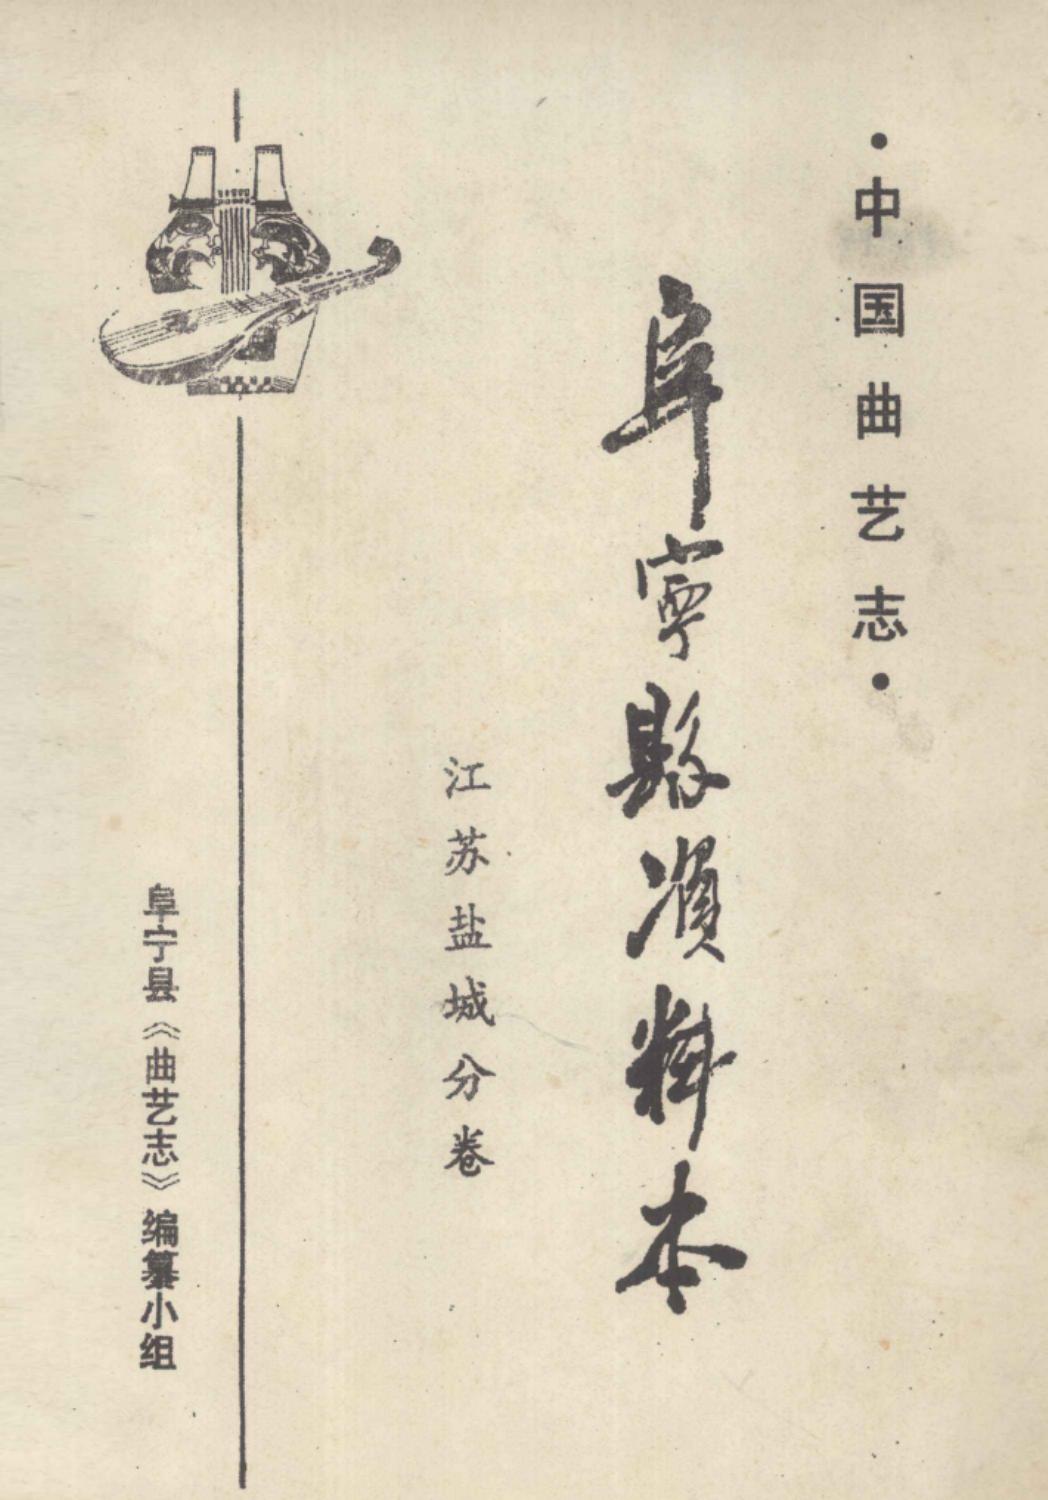 ·中国曲艺志·
阜寧縣資料本
江苏盐城分卷
阜宁县《曲艺志》编纂小组